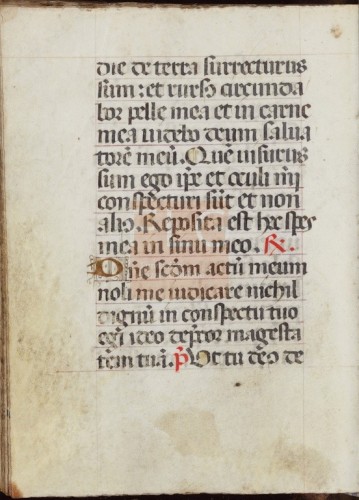 die de terra surrecturus
sum: et rurso circunda
bor pelle mea et in carne
mea videbo deum salua
torē meū. Quē visurus
sum ego ip̄e et oculi m̄i
conspecturi sūt et non
alio. Reposita est hec spes
mea in sinu meo. R.
Dn̄e scd̄m actū meum
noli me iudicare nichil
dignū in conspectu tuo
egi ideo dep̄cor magesta
tem tuā. p̄ Vt tu deo de